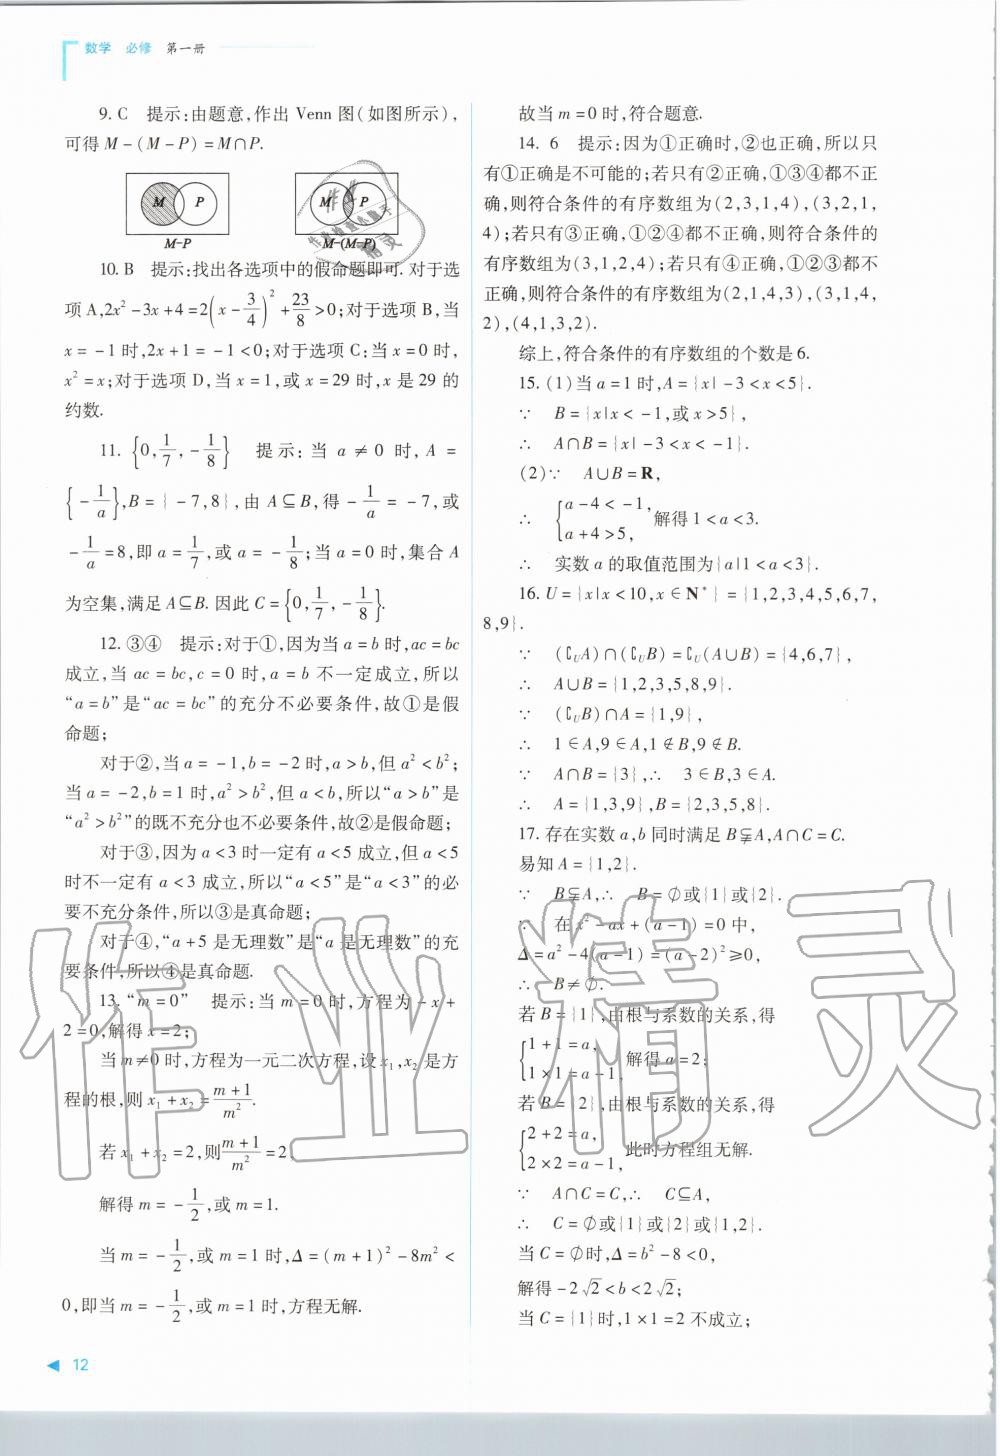 数学 必修 第一册
9. C 提示:由题意,作出 Venn 图(如图所示),
可得 M-(M-P)=M∩P.
M P M P
M-P M-(M-P)
10. B 提示:找出各选项中的假命题即可. 对于选
项 A,2x²-3x+4=2(x-3/4)²+23/8>0;对于选项 B,当
x=-1 时,2x+1=-1<0;对于选项 C:当 x=0 时,
x²=x;对于选项 D,当 x=1,或 x=29 时,x 是 29 的
约数.
11. {0,1/7,-1/8} 提示:当 a≠0 时,A=
{-1/a},B={-7,8},由 A⊆B,得-1/a=-7,或
-1/a=8,即 a=1/7,或 a=-1/8;当 a=0 时,集合 A
为空集,满足 A⊆B. 因此 C={0,1/7,-1/8}.
12. ③④ 提示:对于①,因为当 a=b 时,ac=bc
成立,当 ac=bc,c=0 时,a=b 不一定成立,所以
“a=b”是“ac=bc”的充分不必要条件,故①是假
命题;
对于②,当 a=-1,b=-2 时,a>b,但 a²<b²;
当 a=-2,b=1 时,a²>b²,但 a<b,所以“a>b”是
“a²>b²”的既不充分也不必要条件,故②是假命题;
对于③,因为 a<3 时一定有 a<5 成立,但 a<5
时不一定有 a<3 成立,所以“a<5”是“a<3”的必
要不充分条件,所以③是真命题;
对于④,“a+5 是无理数”是“a 是无理数”的充
要条件,所以④是真命题.
13. “m=0” 提示:当 m=0 时,方程为-x+
2=0,解得 x=2;
当 m≠0 时,方程为一元二次方程,设 x₁,x₂是方
程的根,则 x₁+x₂=(m+1)/m².
若 x₁+x₂=2,则(m+1)/m²=2
解得 m=-1/2,或 m=1.
当 m=-1/2,或 m=1 时,Δ=(m+1)²-8m²<
0,即当 m=-1/2,或 m=1 时,方程无解.
12
故当 m=0 时,符合题意.
14. 6 提示:因为①正确时,②也正确,所以只
有①正确是不可能的;若只有②正确,①③④都不正
确,则符合条件的有序数组为(2,3,1,4),(3,2,1,
4);若只有③正确,①②④都不正确,则符合条件的
有序数组为(3,1,2,4);若只有④正确,①②③都不
正确,则符合条件的有序数组为(2,1,4,3),(3,1,4,
2),(4,1,3,2).
综上,符合条件的有序数组的个数是 6.
15. (1)当 a=1 时,A={x|-3<x<5}.
∵ B={x|x<-1,或 x>5},
∴ A∩B={x|-3<x<-1}.
(2)∵ A∪B=R,
∴ {a-4<-1, a+4>5, 解得 1<a<3.
∴ 实数 a 的取值范围为{a|1<a<3}.
16. U={x|x<10,x∈N*}={1,2,3,4,5,6,7,
8,9}.
∵ (∁UA)∩(∁UB)=∁U(A∪B)={4,6,7},
∴ A∪B={1,2,3,5,8,9}.
∵ (∁UB)∩A={1,9},
∴ 1∈A,9∈A,1∉B,9∉B.
∵ A∩B={3},∴ 3∈B,3∈A.
∴ A={1,3,9},B={2,3,5,8}.
17. 存在实数 a,b 同时满足 B⫋A,A∩C=C.
易知 A={1,2}.
∵ B⫋A,∴ B=∅或{1}或{2}.
∵ 在 x²-ax+(a-1)=0 中,
Δ=a²-4(a-1)=(a-2)²≥0,
∴ B≠∅.
若 B={1},由根与系数的关系,得
{1+1=a, 1×1=a-1, 解得 a=2;
若 B={2},由根与系数的关系,得
{2+2=a, 2×2=a-1, 此时方程组无解.
∵ A∩C=C,∴ C⊆A,
∴ C=∅或{1}或{2}或{1,2}.
当 C=∅时,Δ=b²-8<0,
解得-2√2<b<2√2;
当 C={1}时,1×1=2 不成立;
作业精灵